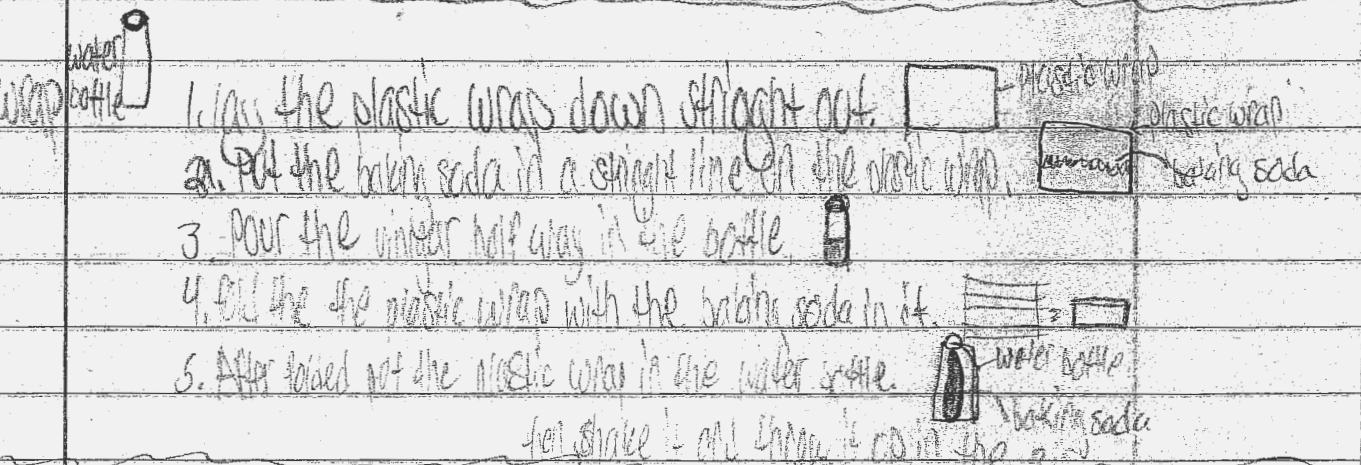 water
wrap bottle
1. lay the plastic wrap down stright out. plastic wrap
plastic wrap
2. Put the baking soda in a stright line on the plastic wrap. baking soda
3. Pour the vinigar half way in the bottle.
4. fold the the plastic wrap with the baking soda in it.
5. After folded put the plastic wrap in the water bottle. water bottle
baking soda
shake it and throw it up in the